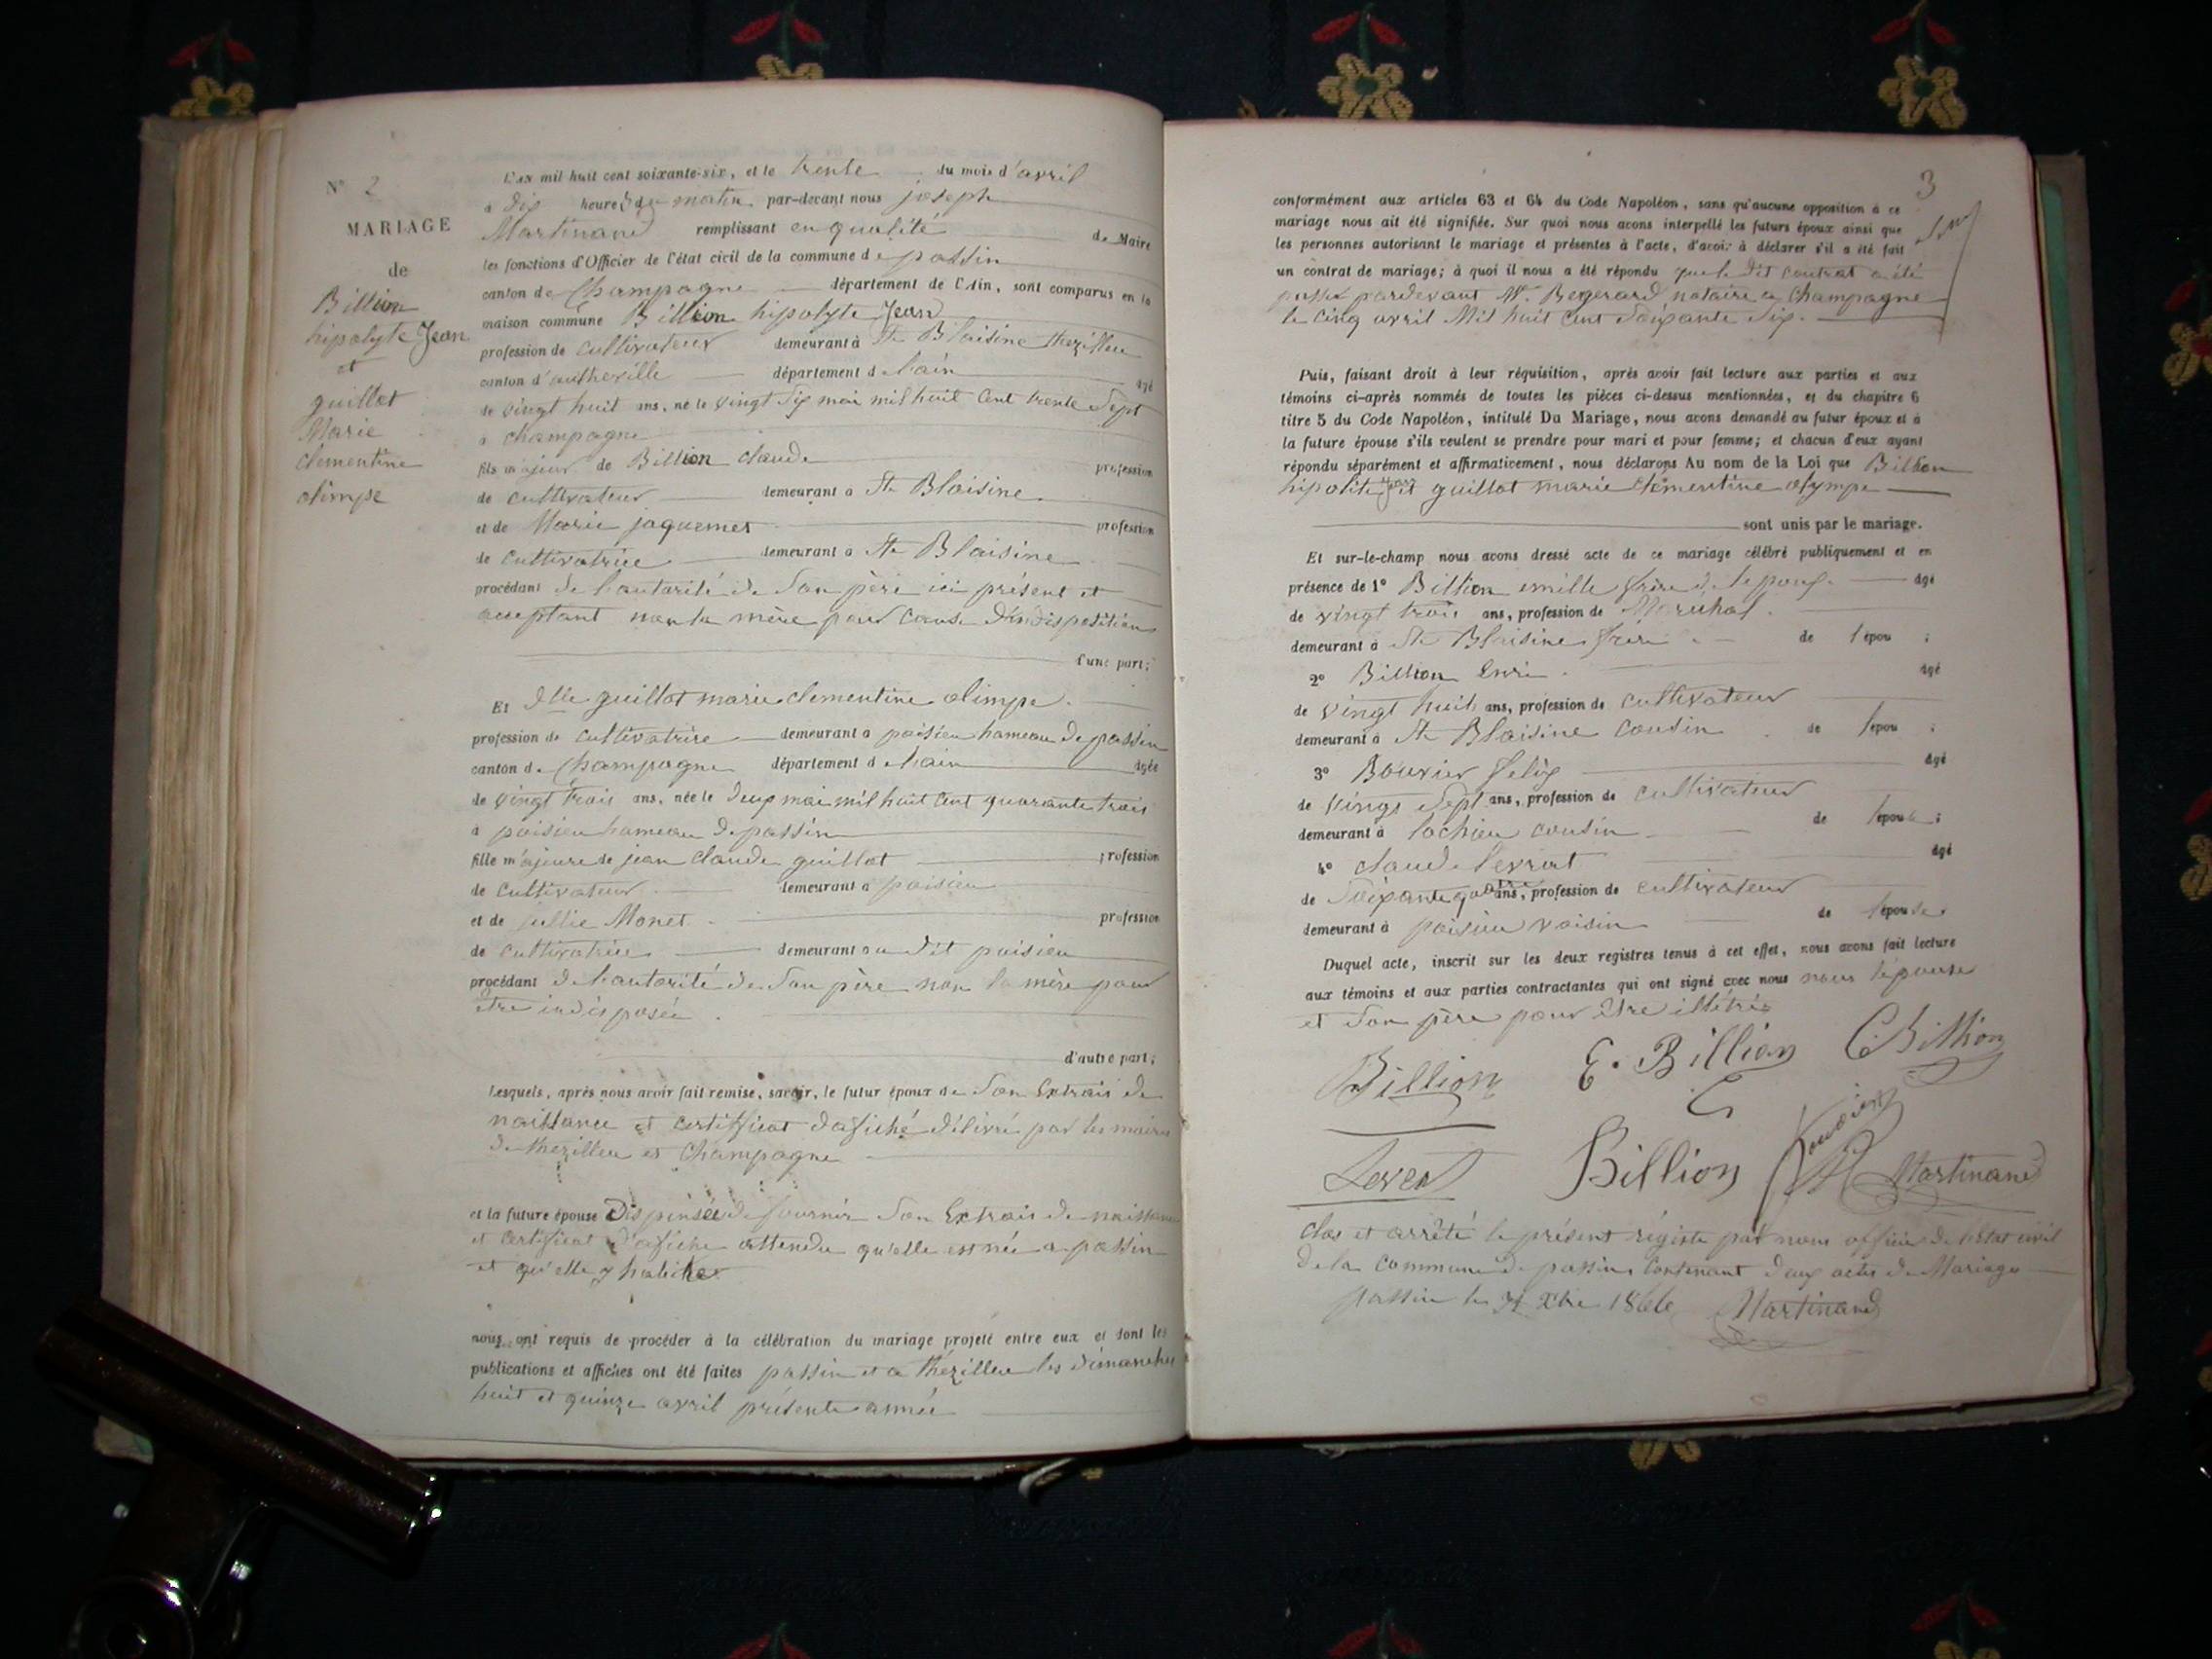 N° 2
MARIAGE
de
Billion
hipolyte Jean
et
guillot
Marie
clementine
olimpe
L'an mil huit cent soixante-six, et le trente du mois d'avril
à dix heures du matin par-devant nous joseph
Martinand remplissant en qualité de Maire
les fonctions d'Officier de l'état civil de la commune de passin
canton de Champagne département de l'Ain, sont comparus en la
maison commune Billion hipolyte Jean
profession de cultivateur demeurant à Ste Blaisine thezillieu
canton d'autheville département d l'ain âgé
de vingt huit ans, né le vingt six mai mil huit cent trente sept
à champagne
fils majeur de Billion claude profession
de cultivateur demeurant à Ste Blaisine
et de Marie jaquemet profession
de cultivatrice demeurant à Ste Blaisine
procédant de l'autorité de son père ici présent et
acceptant non la mère pour cause d'indisposition
d'une part;
Et dlle guillot marie clementine olimpe.
profession de cultivatrice demeurant à poisieu hameau de passin
canton de Champagne département d l'ain âgée
de vingt trois ans, née le deux mai mil huit cent quarante trois
à poisieu hameau de passin
fille majeure de jean claude guillot profession
de cultivateur demeurant à poisieu
et de jullie Monet profession
de cultivatrice demeurant au dit poisieu
procédant de l'autorité de son père non la mère pour
etre indisposée.
d'autre part;
Lesquels, après nous avoir fait remise, savoir, le futur époux de son Extrais de
naissance et certifficat d'afiche délivré par les maires
de thezillieu et Champagne
et la future épouse Dispensée de fournir son Extrais de naissance
et certificat d'afiche attendu qu'elle est née a passin
et qu'elle y habite
nous ont requis de procéder à la célébration du mariage projeté entre eux et dont les
publications et affiches ont été faites passin et a thezillieu les dimanches
huit et quinze avril présente année
3
conformément aux articles 63 et 64 du Code Napoléon, sans qu'aucune opposition à ce
mariage nous ait été signifiée. Sur quoi nous avons interpellé les futurs époux ainsi que
les personnes autorisant le mariage et présentes à l'acte, d'avoir à déclarer s'il a été fait
un contrat de mariage; à quoi il nous a été répondu que le dit contrat a été
passé pardevant Mr. Begerard notaire a Champagne
le cinq avril Mil huit cent soixante six.
Puis, faisant droit à leur réquisition, après avoir fait lecture aux parties et aux
témoins ci-après nommés de toutes les pièces ci-dessus mentionnées, et du chapitre 6
titre 5 du Code Napoléon, intitulé Du Mariage, nous avons demandé au futur époux et à
la future épouse s'ils veulent se prendre pour mari et pour femme; et chacun d'eux ayant
répondu séparément et affirmativement, nous déclarons Au nom de la Loi que Billion
hipolite Jean et guillot marie clémentine olympe
sont unis par le mariage.
Et sur-le-champ nous avons dressé acte de ce mariage célébré publiquement et en
présence de 1° Billion emille frère de l'epoux âgé
de vingt trois ans, profession de Maréchal.
demeurant à Ste Blaisine frere de l'épou ;
2° Billion Enri âgé
de vingt huit ans, profession de cultivateur
demeurant à Ste Blaisine cousin de l'épou ;
3° Bouvier felix âgé
de vingt sept ans, profession de cultivateur
demeurant à lochieu cousin de l'épouse ;
4° claude levrat âgé
de soixante quatre ans, profession de cultivateur
demeurant à poisieu voisin de l'épouse
Duquel acte, inscrit sur les deux registres tenus à cet effet, nous avons fait lecture
aux témoins et aux parties contractantes qui ont signé avec nous nous l'épouse
et son père pour être illétrés
Billion E. Billion C Billion
Levrat Billion Bouvier Martinand
clos et arrêté le présent régiste par nous officier de l'Etat civil
de la commune de passin contenant deux actes de Mariage
passin le 31 Xbre 1866 Martinand